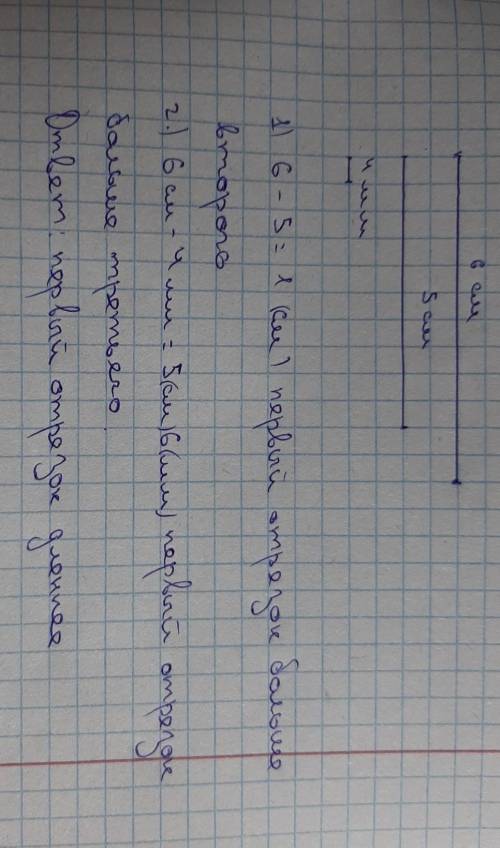 6 см
5 см
4 мм
1) 6 - 5 = 1 (см) первый отрезок больше
второго
2.) 6 см - 4 мм = 5(см)6(мм) первый отрезок
больше третьего.
Ответ: первый отрезок длennее